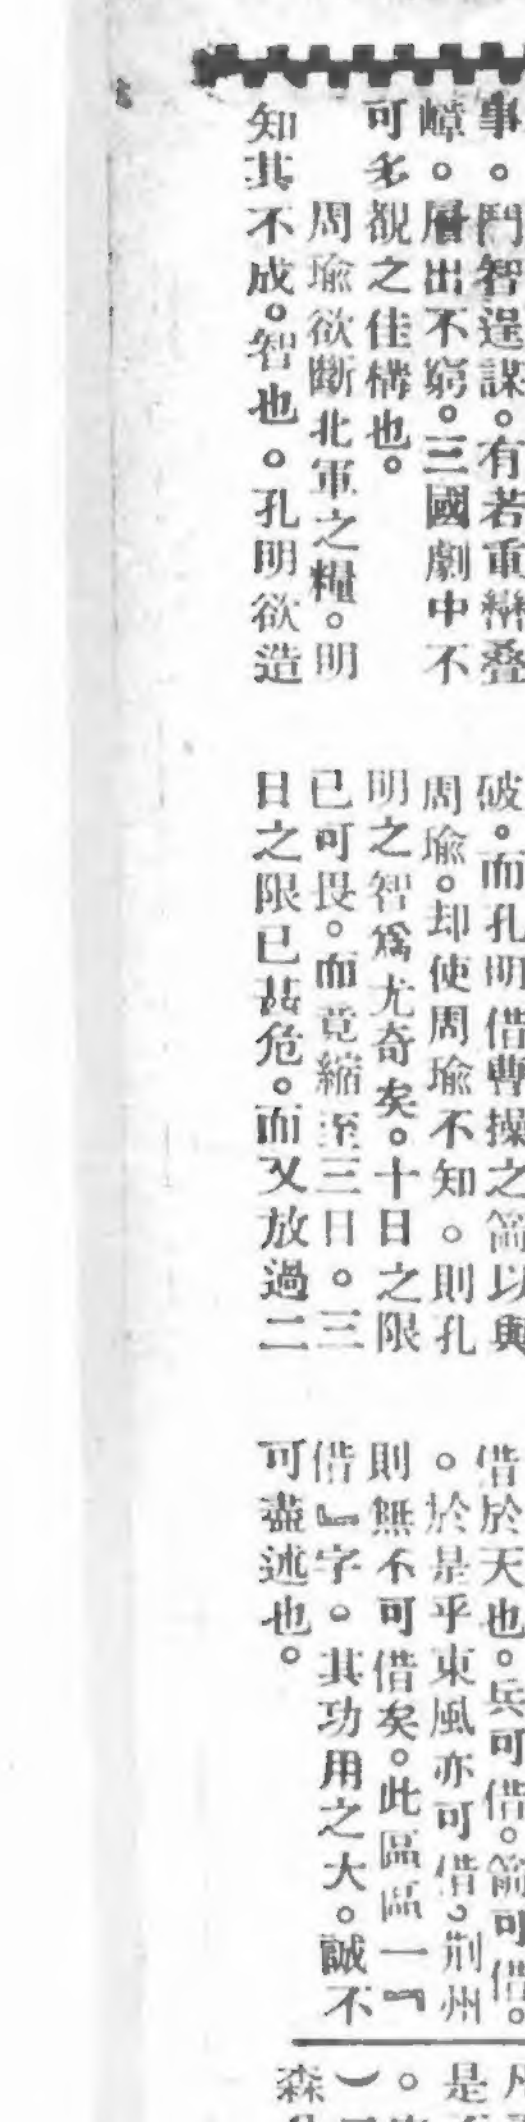 事。鬥智逞謀。有若重巒叠
嶂。層出不窮。三國劇中不
可多覩之佳構也。
周瑜欲斷北軍之糧。明
知其不成。智也。孔明欲造
破。而孔明借曹操之箭以與
周瑜。却使周瑜不知。則孔
明之智爲尤奇矣。十日之限
已可畏。而竟縮至三日。三
日之限已甚危。而又放過二
借於天也。兵可借。箭可借。
。於是乎東風亦可借，荆州
則無不可借矣。此區區一『
借』字。其功用之大。誠不
可盡述也。
是
。
森